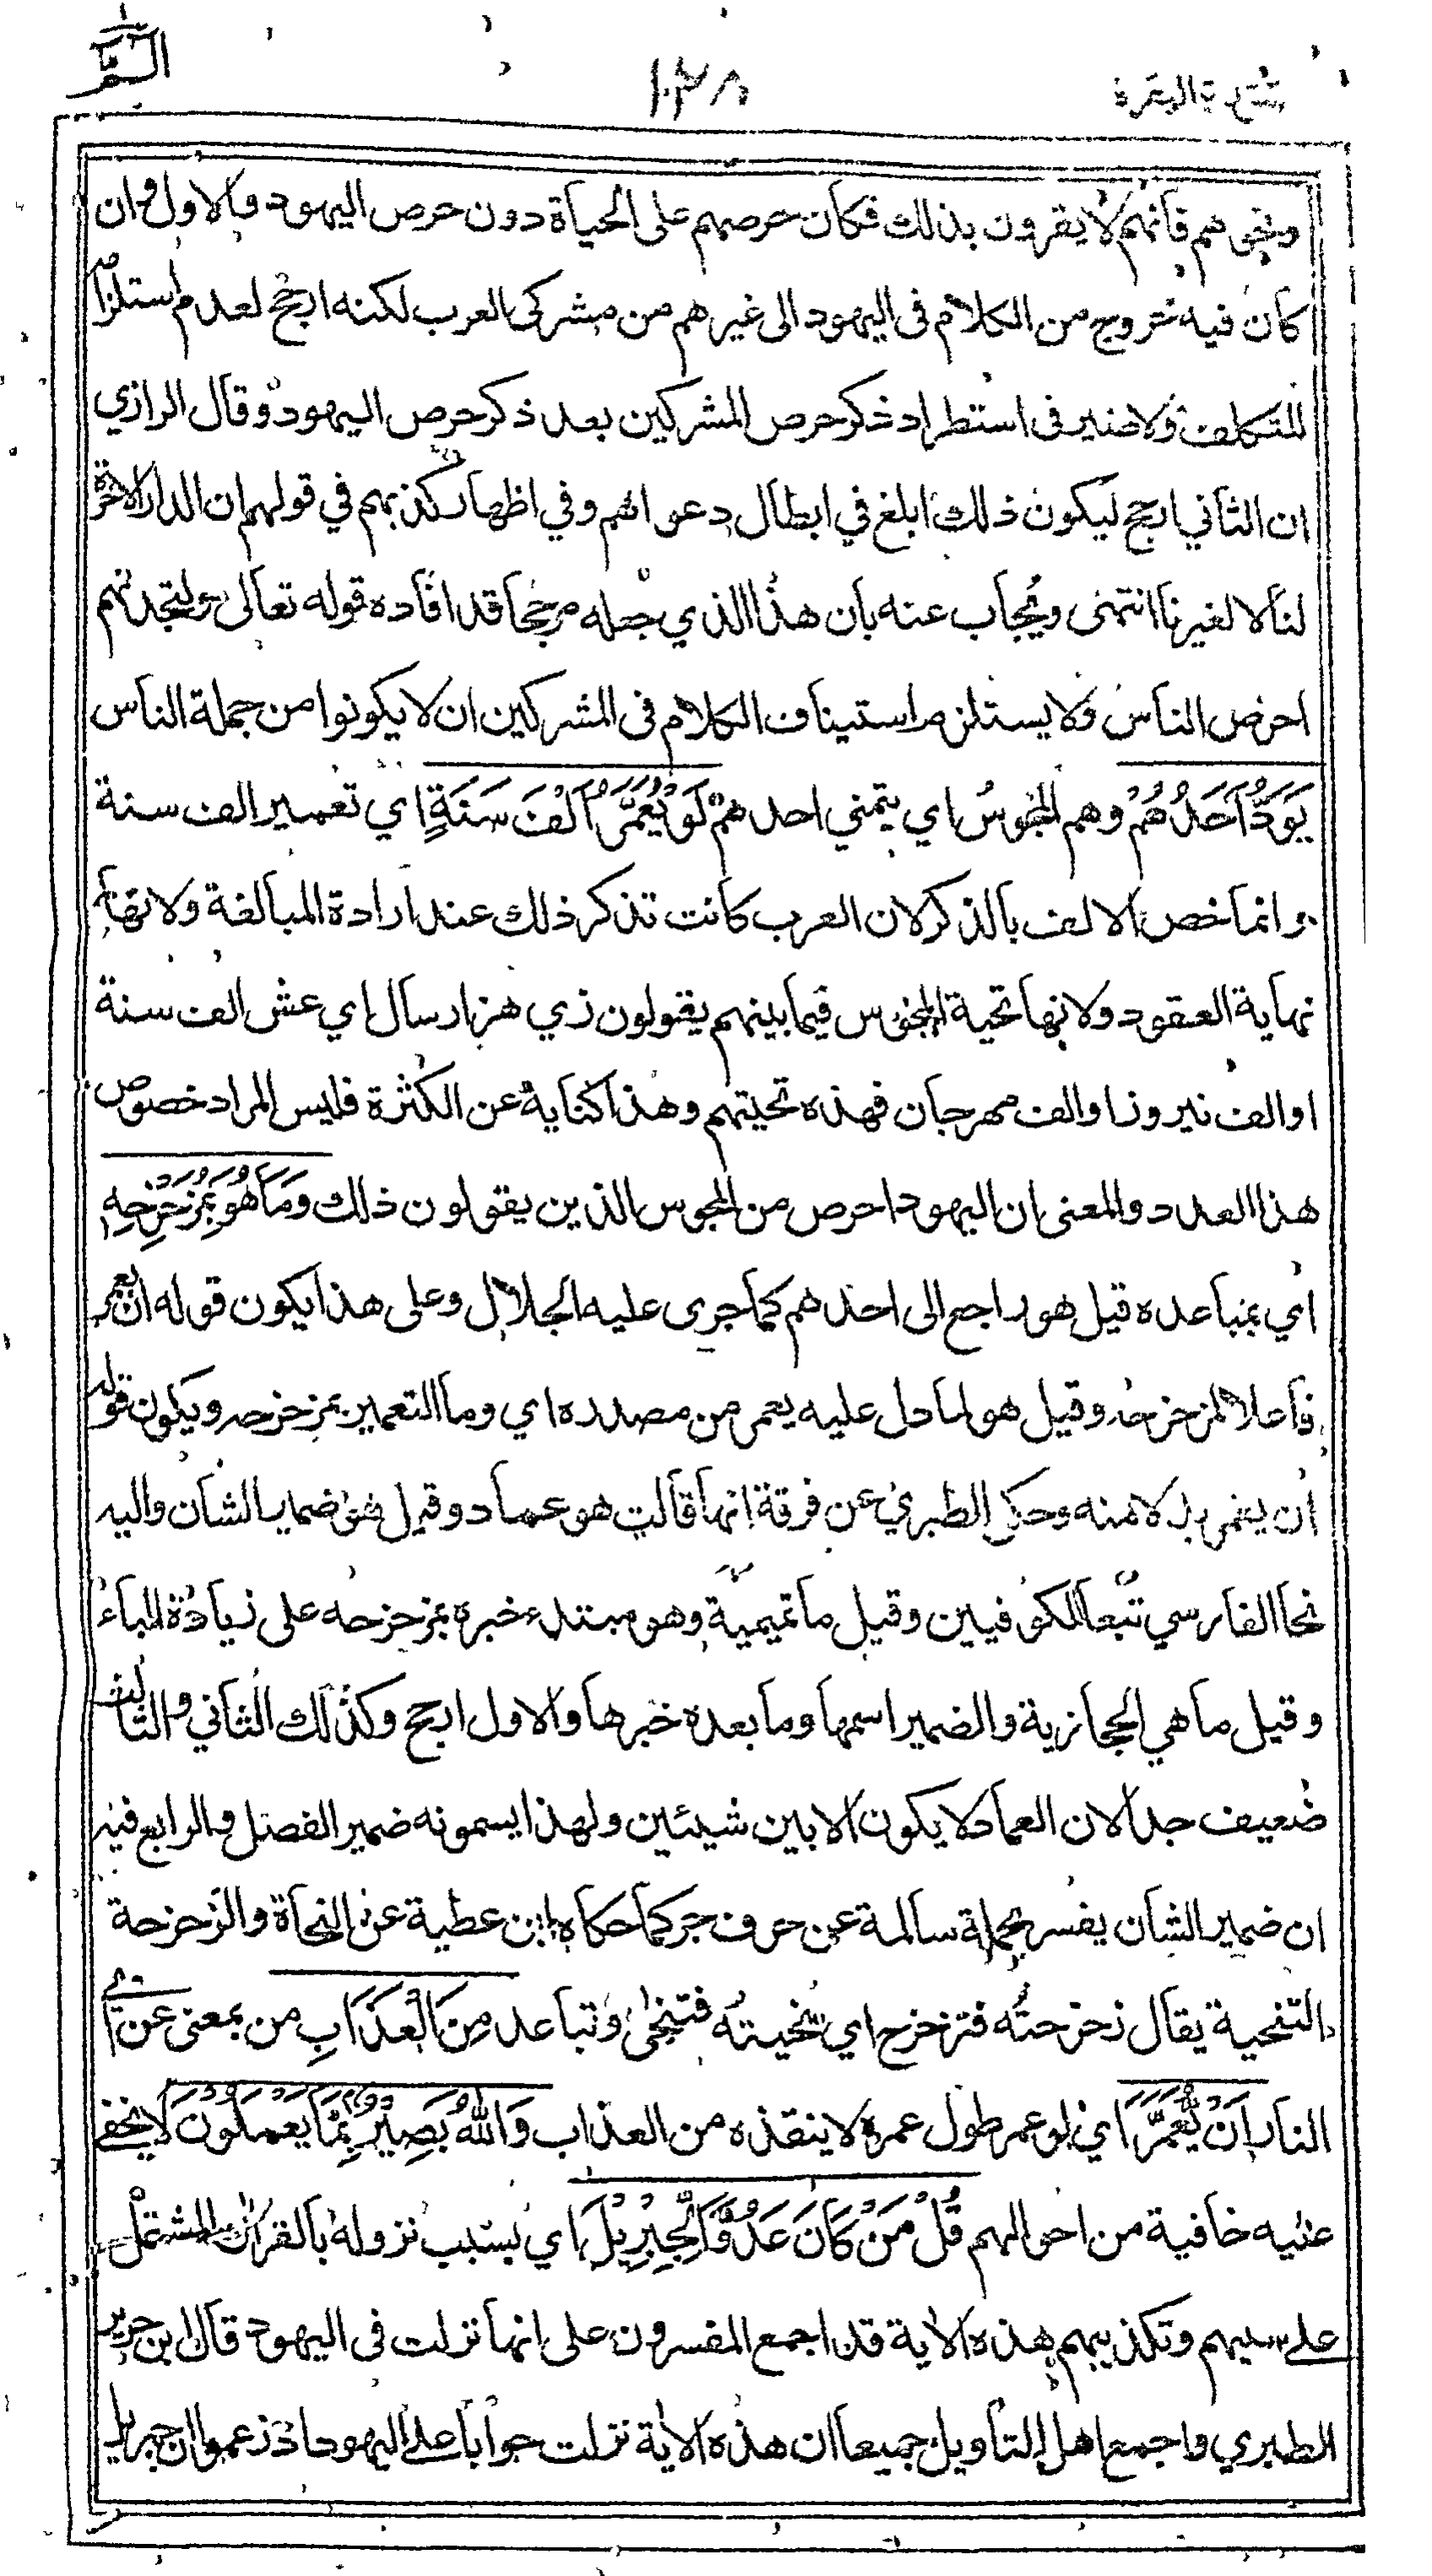 الٓمٓ
١٣٨
سورة البقرة
ونحوهم فانهم لا يقرون بذلك فكان حرصهم على الحياة دون حرص اليهود والاول وان
كان فيه خروج من الكلام فى اليهود الى غيرهم من مشركى العرب لكنه ارجح لعدم استلزامه
للتكلف ولا ضير فى استطراد ذكر حرص المشركين بعد ذكر حرص اليهود وقال الرازي
ان الثاني ارجح ليكون ذلك ابلغ في ابطال دعواهم وفي اظهار كذبهم في قولهم ان الدار الاخرة
لنا لا لغيرنا انتهى ويجاب عنه بان هذا الذي جعله مرجحا قد افاده قوله تعالى ولتجدنهم
احرص الناس ولا يستلزم استيناف الكلام فى المشركين ان لا يكونوا من جملة الناس
يَوَدُّ اَحَدُهُمْ وهم المجوس اي يتمني احدهم لَوْ يُعَمَّرُ اَلْفَ سَنَةٍ اي تعمير الف سنة
وانما خص الالف بالذكر لان العرب كانت تذكر ذلك عند ارادة المبالغة ولانها
نهاية العقود ولانها تحية المجوس فيما بينهم يقولون زي هزار سال اي عش الف سنة
او الف نيروز او الف مهرجان فهذه تحيتهم وهذا كناية عن الكثرة فليس المراد خصوص
هذا العدد والمعنى ان اليهود احرص من المجوس الذين يقولون ذلك وَمَا هُوَ بِمُزَحْزِحِهٖ
اي بمباعده قيل هو راجع الى احدهم كما جرى عليه الجلال وعلى هذا يكون قوله ان يعمر
فاعلا لمزحزحه وقيل هو لما دل عليه يعمر من مصدره اي وما التعمير بمزحزحه ويكون قوله
ان يعمر بدلا منه وحكى الطبري عن فرقة انها قالت هو عماد وقيل هو ضمير الشان واليه
نحا الفارسي تبعا للكوفيين وقيل ما تميمية وهو مبتدء خبره بمزحزحه على زيادة الباء
وقيل ما هي الحجازية والضمير اسمها وما بعده خبرها والاول ارجح وكذلك الثاني والثالث
ضعيف جدا لان العماد لا يكون الا بين شيئين ولهذا يسمونه ضمير الفصل والرابع فيه
ان ضمير الشان يفسر بجملة سالمة عن حرف جر كما حكاه ابن عطية عن النحاة والزحزحة
التنحية يقال زحزحته فتزحزح اي نحيته فتنحى وتباعد مِنَ الْعَذَابِ من بمعنى عن اي
النار اَنْ يُّعَمَّرَ اي لو عمر طول عمره لا ينقذه من العذاب وَاللهُ بَصِيْرٌ بِمَا يَعْمَلُوْنَ لا يخفى
عليه خافية من احوالهم قُلْ مَنْ كَانَ عَدُوًّا لِّجِبْرِيْلَ اي بسبب نزوله بالقران المشتمل
على سبهم وتكذيبهم هذه الاية قد اجمع المفسرون على انها نزلت فى اليهود قال ابن جرير
الطبري واجمع اهل التأويل جميعا ان هذه الاية نزلت جوابا على اليهود اذ زعموا ان جبريل